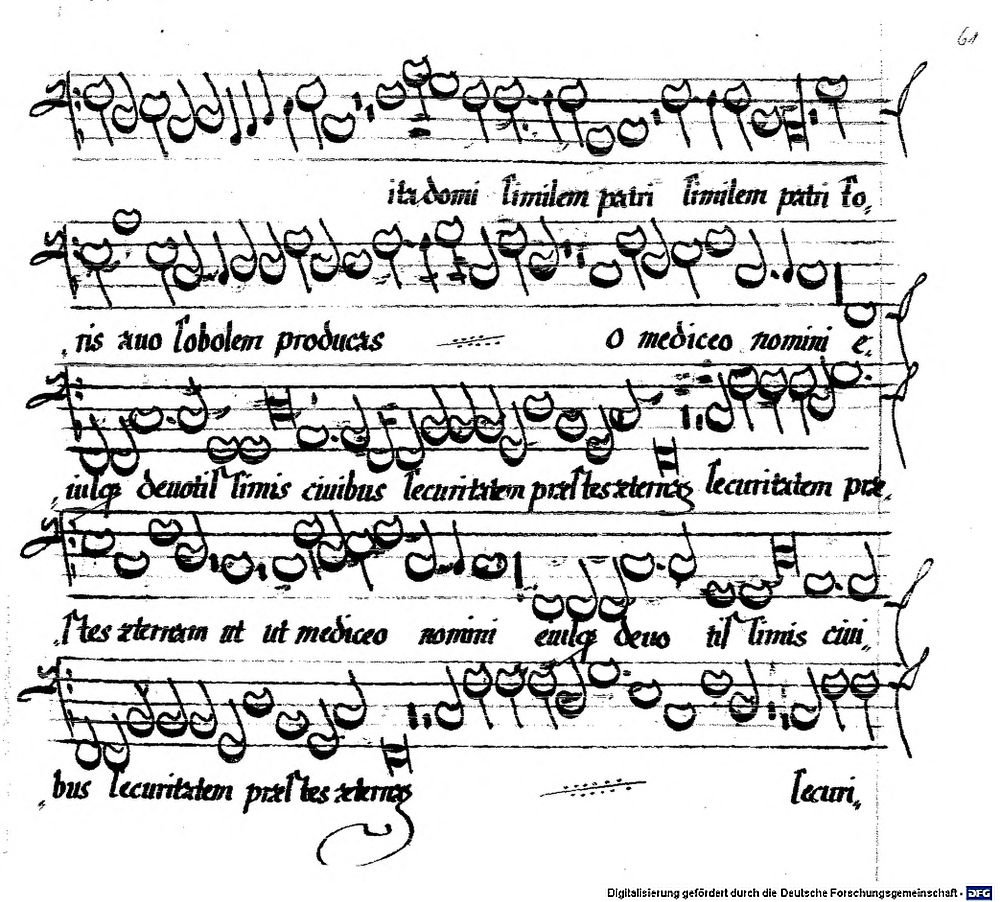 61
ita domi similem patri similem patri so„
„ris auo sobolem producas O mediceo nomini e„
„iusq deuotis simis ciuibus securitatem præs tes æternæ securitatem præ„
„s tes æternam ut ut mediceo nomini eiusq deuo tis simis ciui„
„bus securitatem præs tes æternæ securi„
Digitalisierung gefördert durch die Deutsche Forschungsgemeinschaft - DFG